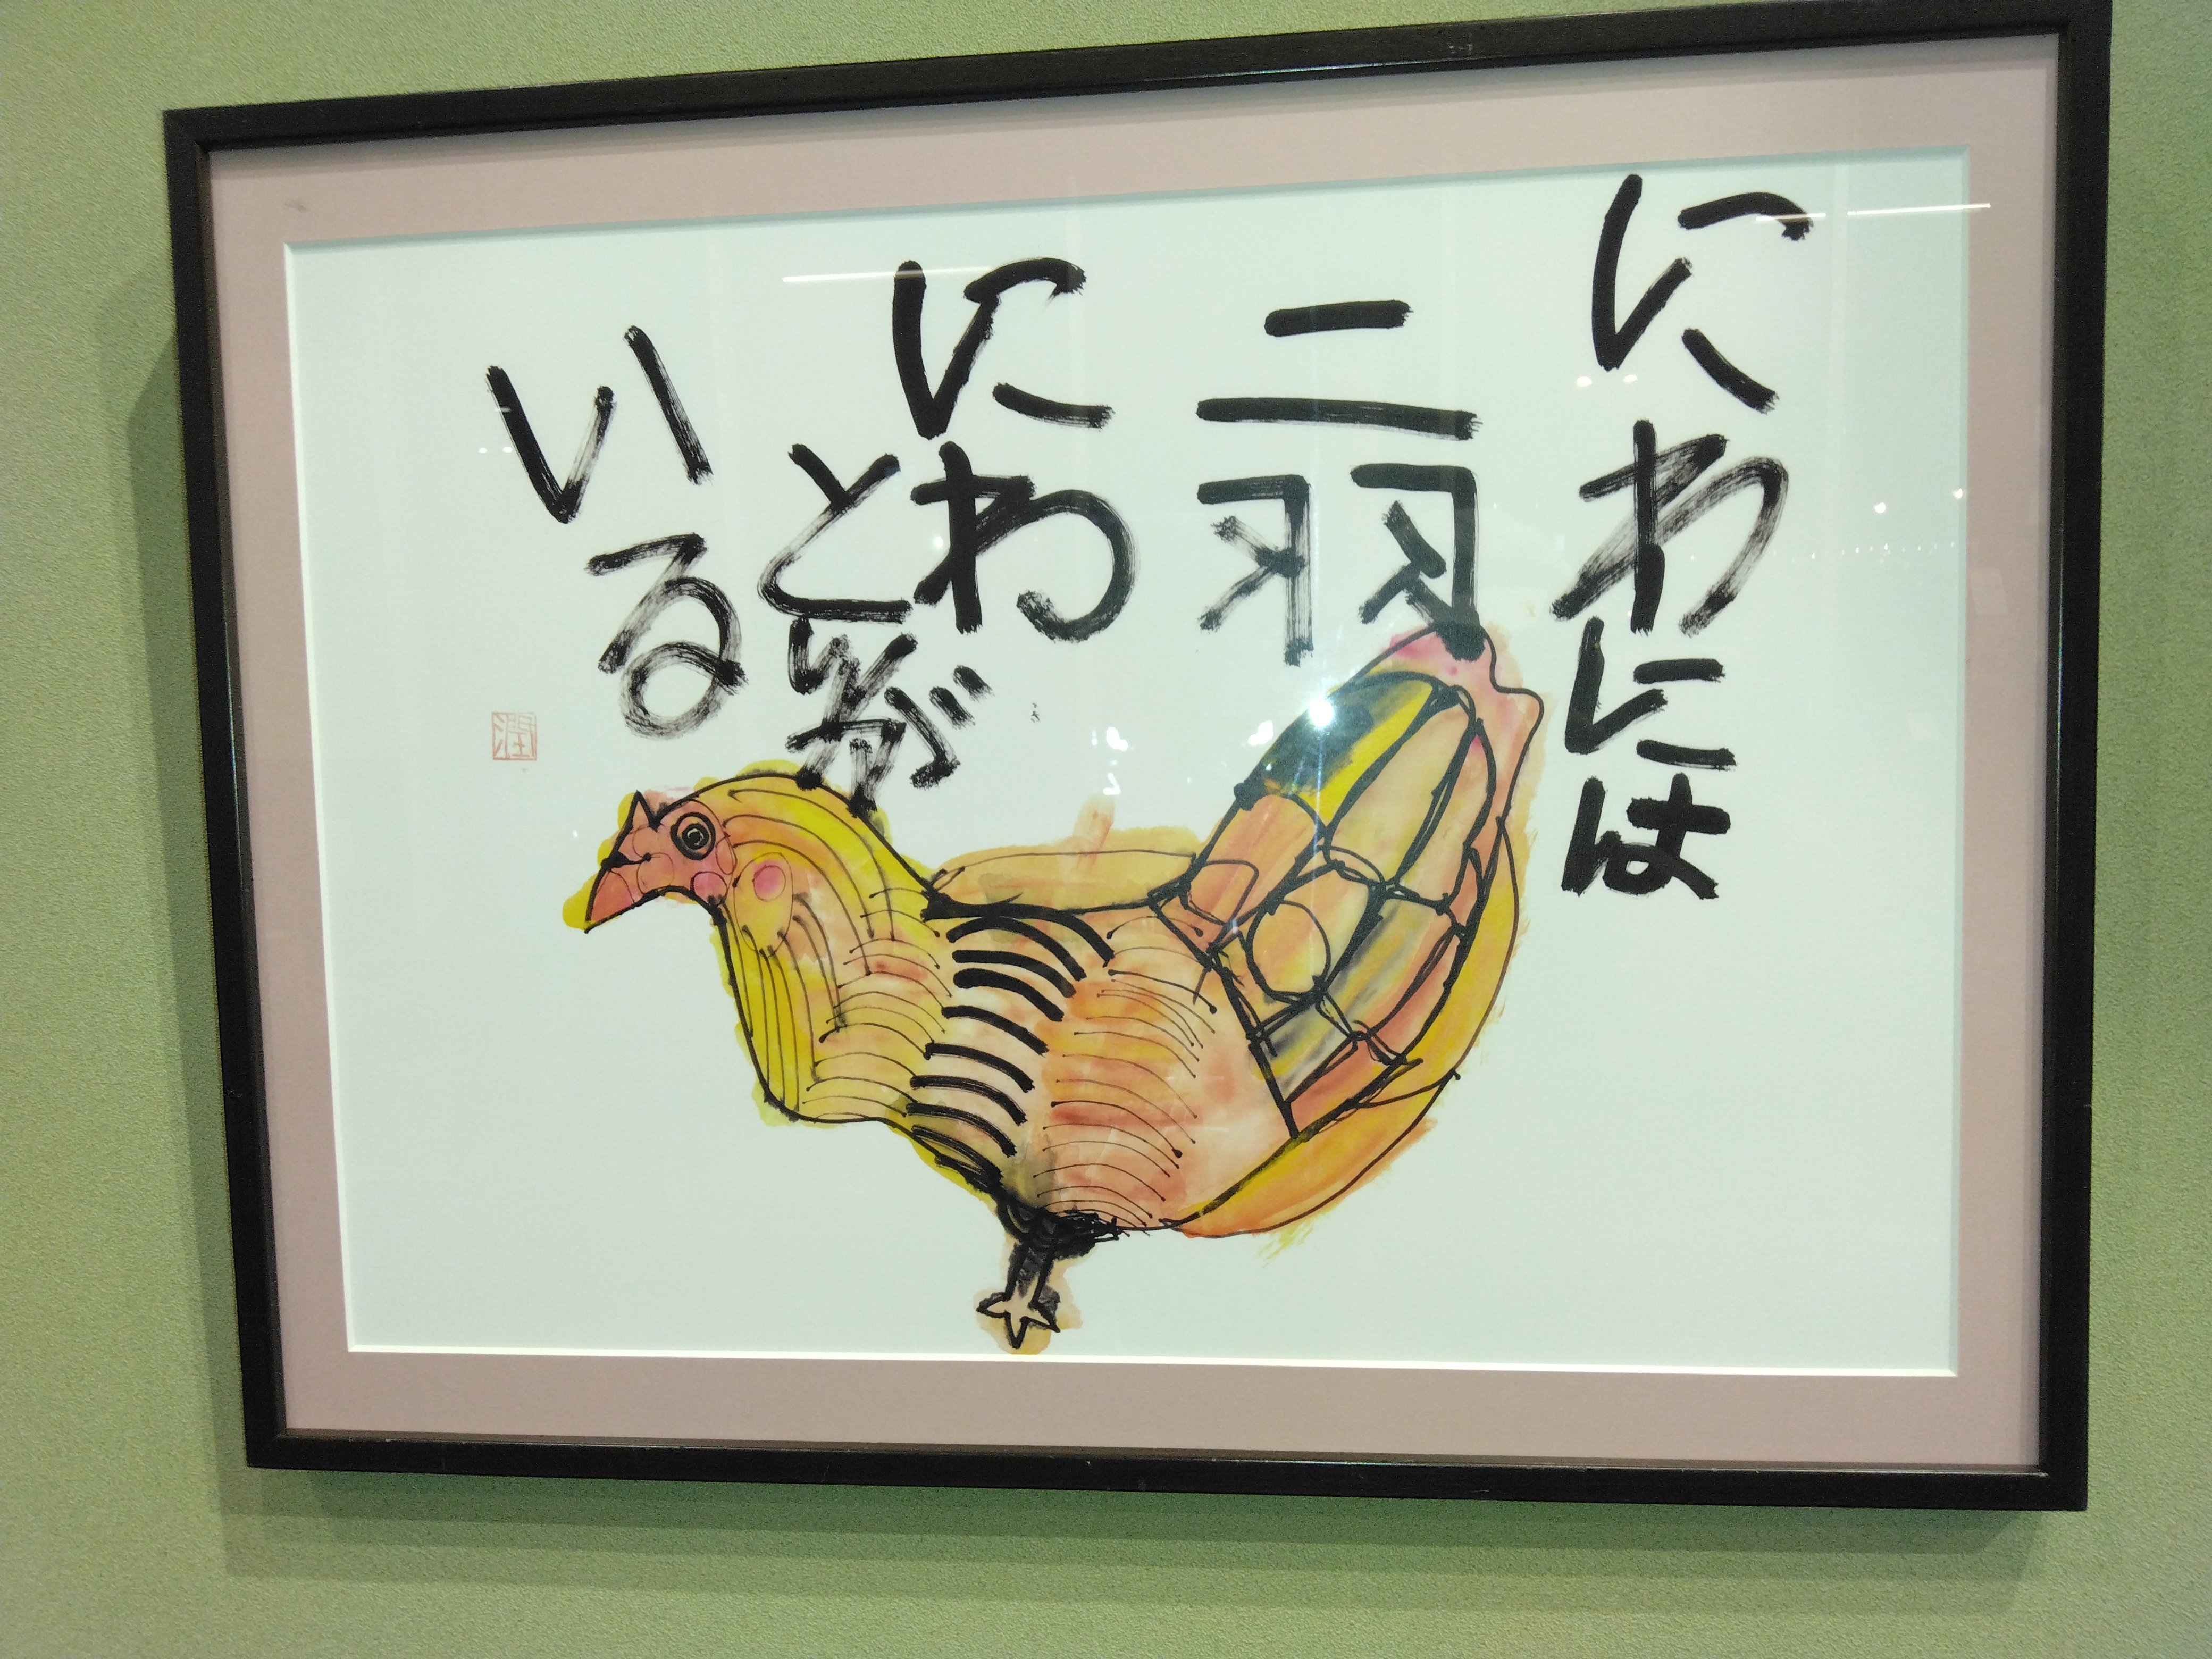 にわには
二羽
にわ
とりが
いる
潤